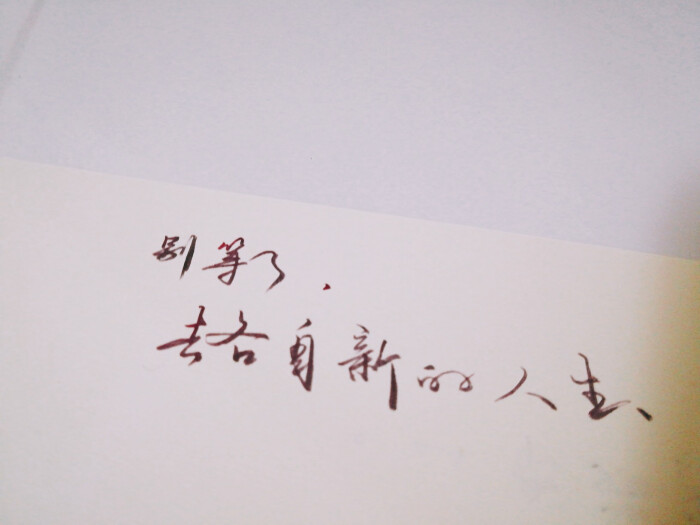 别等了，
去各自新的人生、